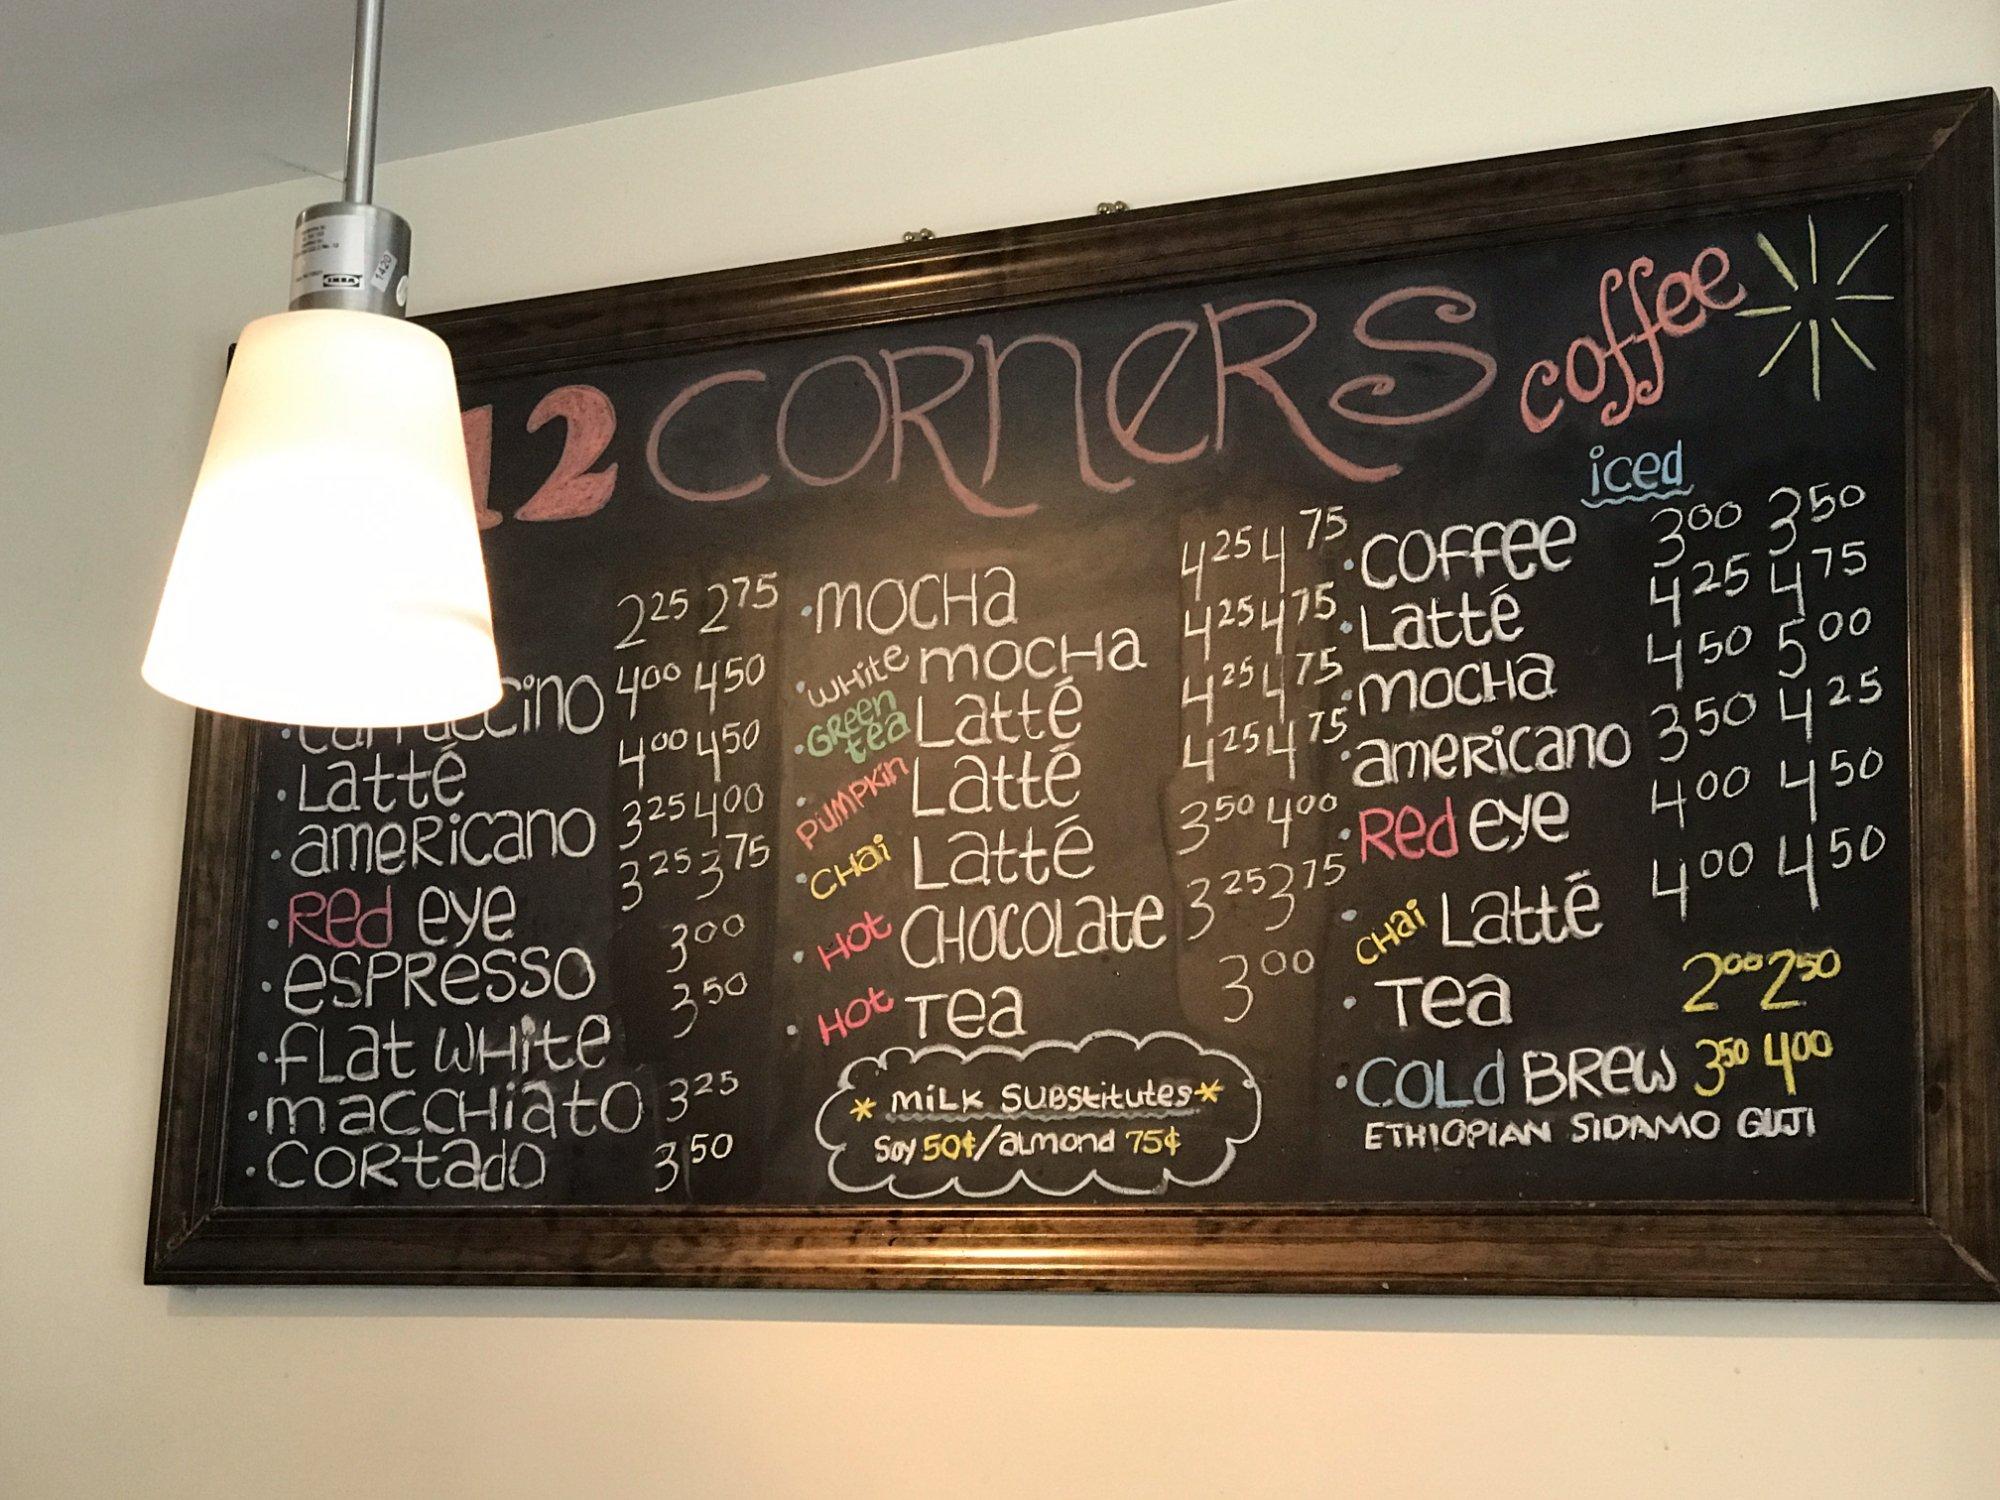 12 CORNERS coffee
2.25 2.75
Cappuccino 4.00 4.50
· Latté 4.00 4.50
· americano 3.25 4.00
· Red eye 3.25 3.75
· espresso 3.00
· flat white 3.50
· macchiato 3.25
· cortado 3.50
· mocha 4.25 4.75
· white mocha 4.25 4.75
· Green tea Latté 4.25 4.75
· Pumpkin Latté 4.25 4.75
· Chai Latté 3.50 4.00
· Hot Chocolate 3.25 3.75
· Hot Tea 3.00
* Milk Substitutes *
Soy 50¢/almond 75¢
iced
· Coffee 3.00 3.50
· Latté 4.25 4.75
· mocha 4.50 5.00
· americano 3.50 4.25
· Red eye 4.00 4.50
· Chai Latté 4.00 4.50
· Tea 2.00 2.50
· Cold Brew 3.50 4.00
ETHIOPIAN SIDAMO GUJI
IKEA
1420